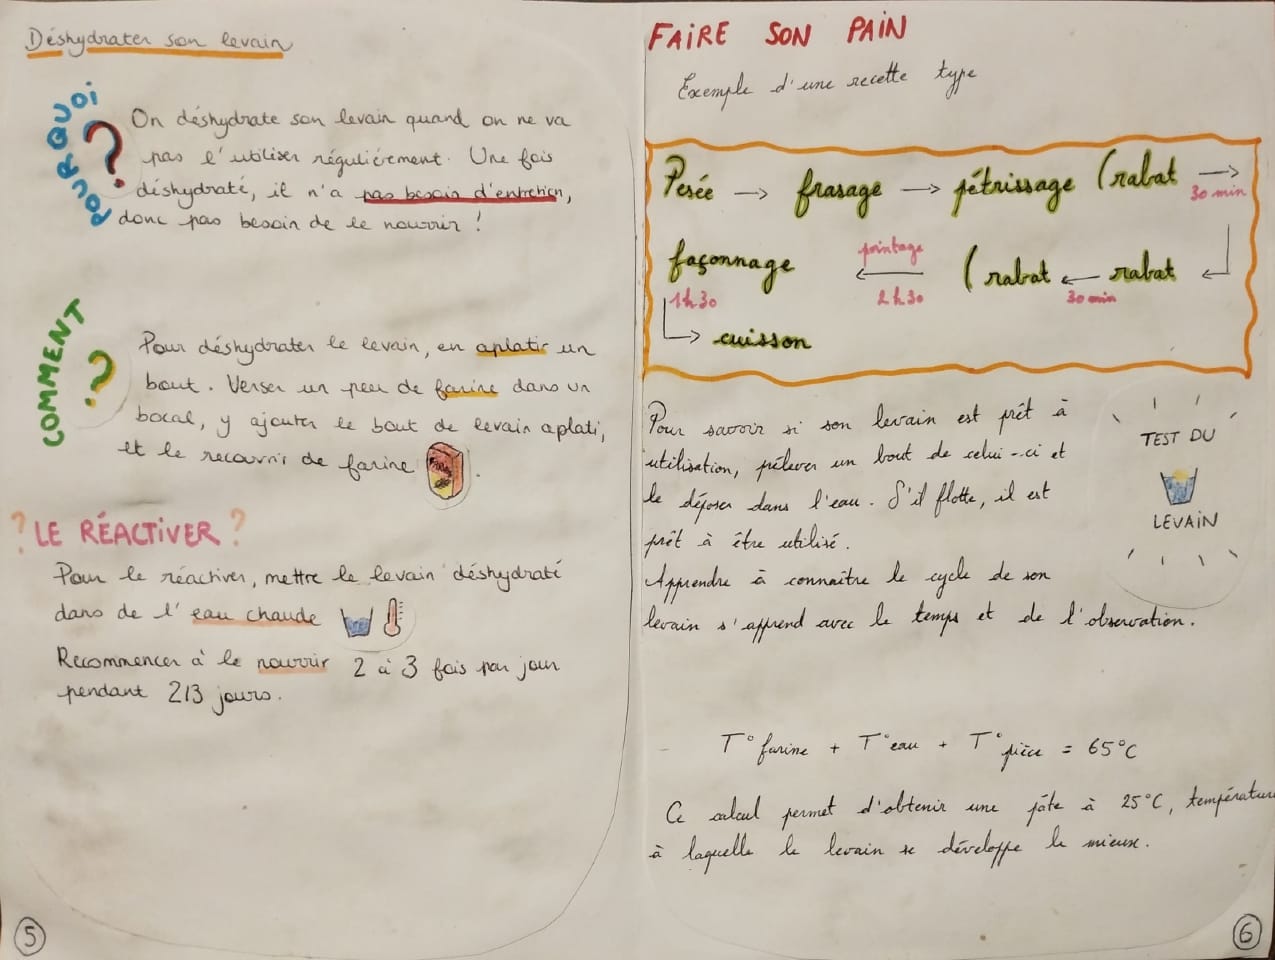 Déshydrater son levain
POURQUOI
?
On déshydrate son levain quand on ne va
pas l'utiliser régulièrement. Une fois
déshydraté, il n'a pas besoin d'entretien,
donc pas besoin de le nourrir !
COMMENT
?
Pour déshydrater le levain, en aplatir un
bout. Verser un peu de farine dans un
bocal, y ajouter le bout de levain aplati,
et le recouvrir de farine .
? LE RÉACTIVER ?
Pour le réactiver, mettre le levain déshydraté
dans de l'eau chaude
Recommencer à le nourrir 2 à 3 fois par jour
pendant 2/3 jours.
5
FAIRE SON PAIN
Exemple d'une recette type
Pesée → frasage → pétrissage (rabat →
30 min
façonnage ← pointage (rabat ← rabat ←
1h30 2h30 30 min
→ cuisson
Pour savoir si son levain est prêt à
utilisation, prélever un bout de celui-ci et
le déposer dans l'eau. S'il flotte, il est
prêt à être utilisé.
Apprendre à connaître le cycle de son
levain s'apprend avec le temps et de l'observation.
TEST DU
LEVAIN
T° farine + T° eau + T° pièce = 65°C
Ce calcul permet d'obtenir une pâte à 25°C, température
à laquelle le levain se développe le mieux.
6